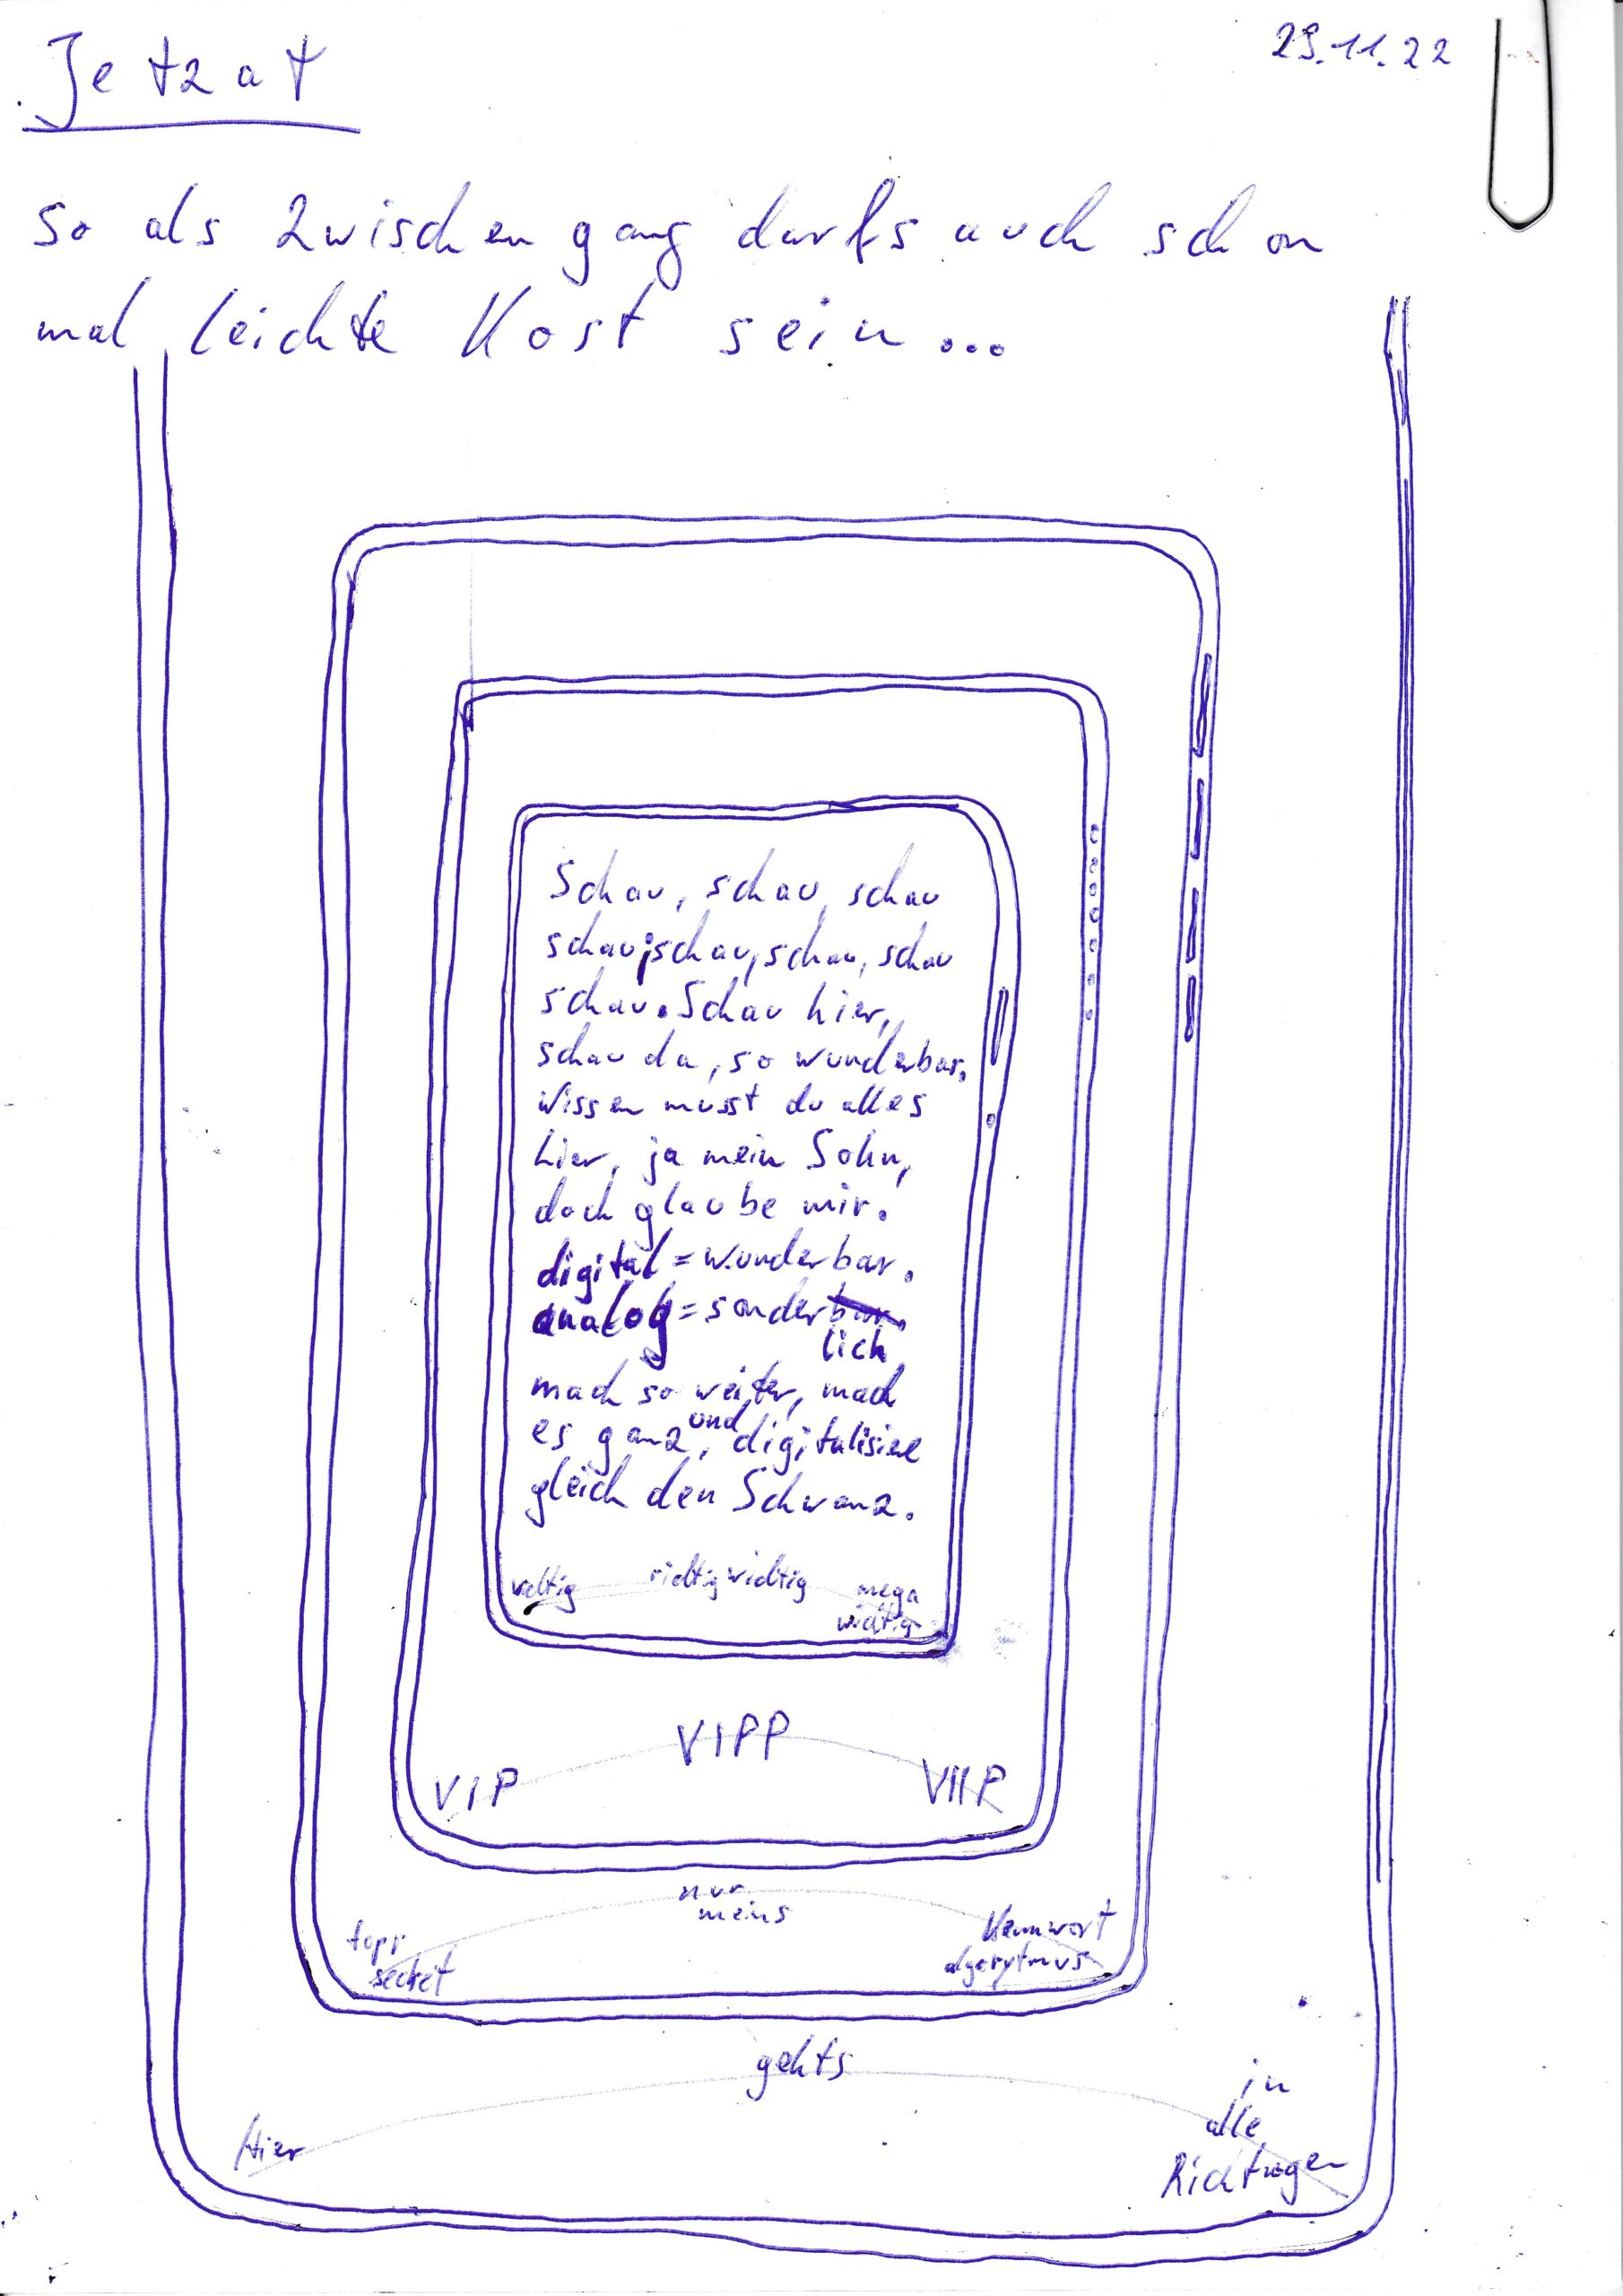 Jetzat
29.11.22
so als Zwischengang darfs auch schon
mal leichte Kost sein...
Schau, schau, schau
schau, schau, schau, schau
schau. Schau hier,
schau da, so wunderbar.
Wissen musst du alles
hier, ja mein Sohn,
doch glaube mir.
digital = wunderbar.
analog = sonderbar.
lich
mach so weiter, mach
es ganz, und digitalisiere
gleich den Schwanz.
wichtig richtig wichtig mega
wichtig
VIPP
VIP VIIP
nur
meins
topp
secket
Kennwort
algorytmus
gehts
Hier
in
alle
Richtungen